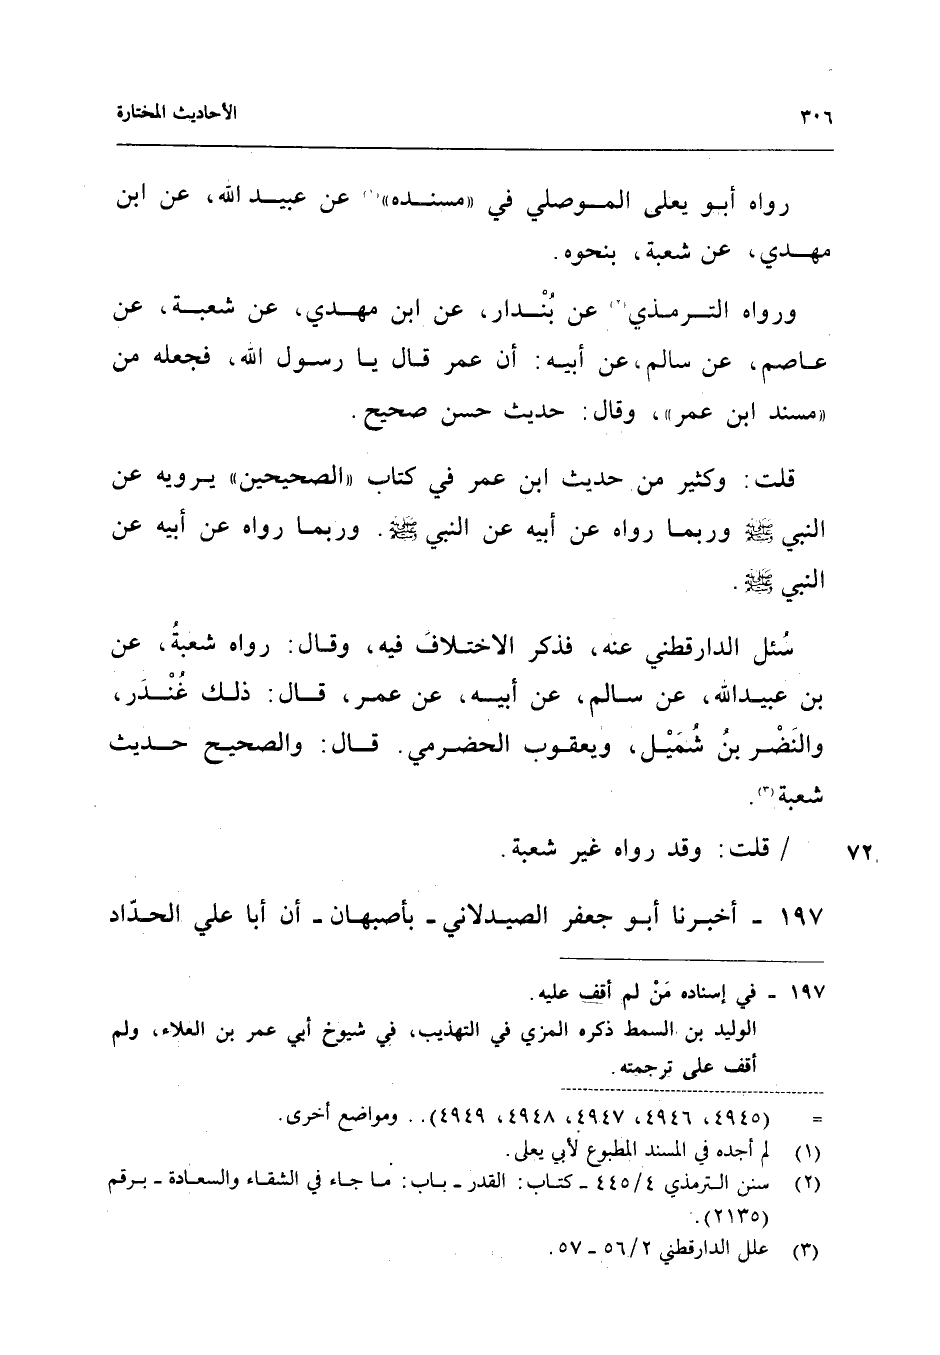 ٣٠٦ الأحاديث المختارة
رواه أبو يعلى الموصلي في «مسنده»(١) عن عبيد الله، عن ابن
مهدي، عن شعبة، بنحوه.
ورواه الترمذي(٢) عن بُنْدار، عن ابن مهدي، عن شعبة، عن
عاصم، عن سالم، عن أبيه: أن عمر قال يا رسول الله، فجعله من
«مسند ابن عمر»، وقال: حديث حسن صحيح.
قلت: وكثير من حديث ابن عمر في كتاب «الصحيحين» يرويه عن
النبي ﷺ وربما رواه عن أبيه عن النبي ﷺ. وربما رواه عن أبيه عن
النبي ﷺ.
سُئل الدارقطني عنه، فذكر الاختلافَ فيه، وقال: رواه شعبةُ، عن
بن عبيدالله، عن سالم، عن أبيه، عن عمر، قال: ذلك غُنْدَر،
والنَضْر بنُ شُمَيْل، ويعقوب الحضرمي. قال: والصحيح حديث
شعبة(٣).
٧٢ / قلت: وقد رواه غير شعبة.
١٩٧ - أخبرنا أبو جعفر الصيدلاني - بأصبهان - أن أبا علي الحدّاد
١٩٧ - في إسناده مَنْ لم أقف عليه.
الوليد بن السمط ذكره المزي في التهذيب، في شيوخ أبي عمر بن العلاء، ولم
أقف على ترجمته.
= (٤٩٤٥، ٤٩٤٦، ٤٩٤٧، ٤٩٤٨، ٤٩٤٩).. ومواضع أخرى.
(١) لم أجده في المسند المطبوع لأبي يعلى.
(٢) سنن الترمذي ٤/٤٤٥ - كتاب: القدر - باب: ما جاء في الشقاء والسعادة - برقم
(٢١٣٥).
(٣) علل الدارقطني ٢/٥٦ - ٥٧.